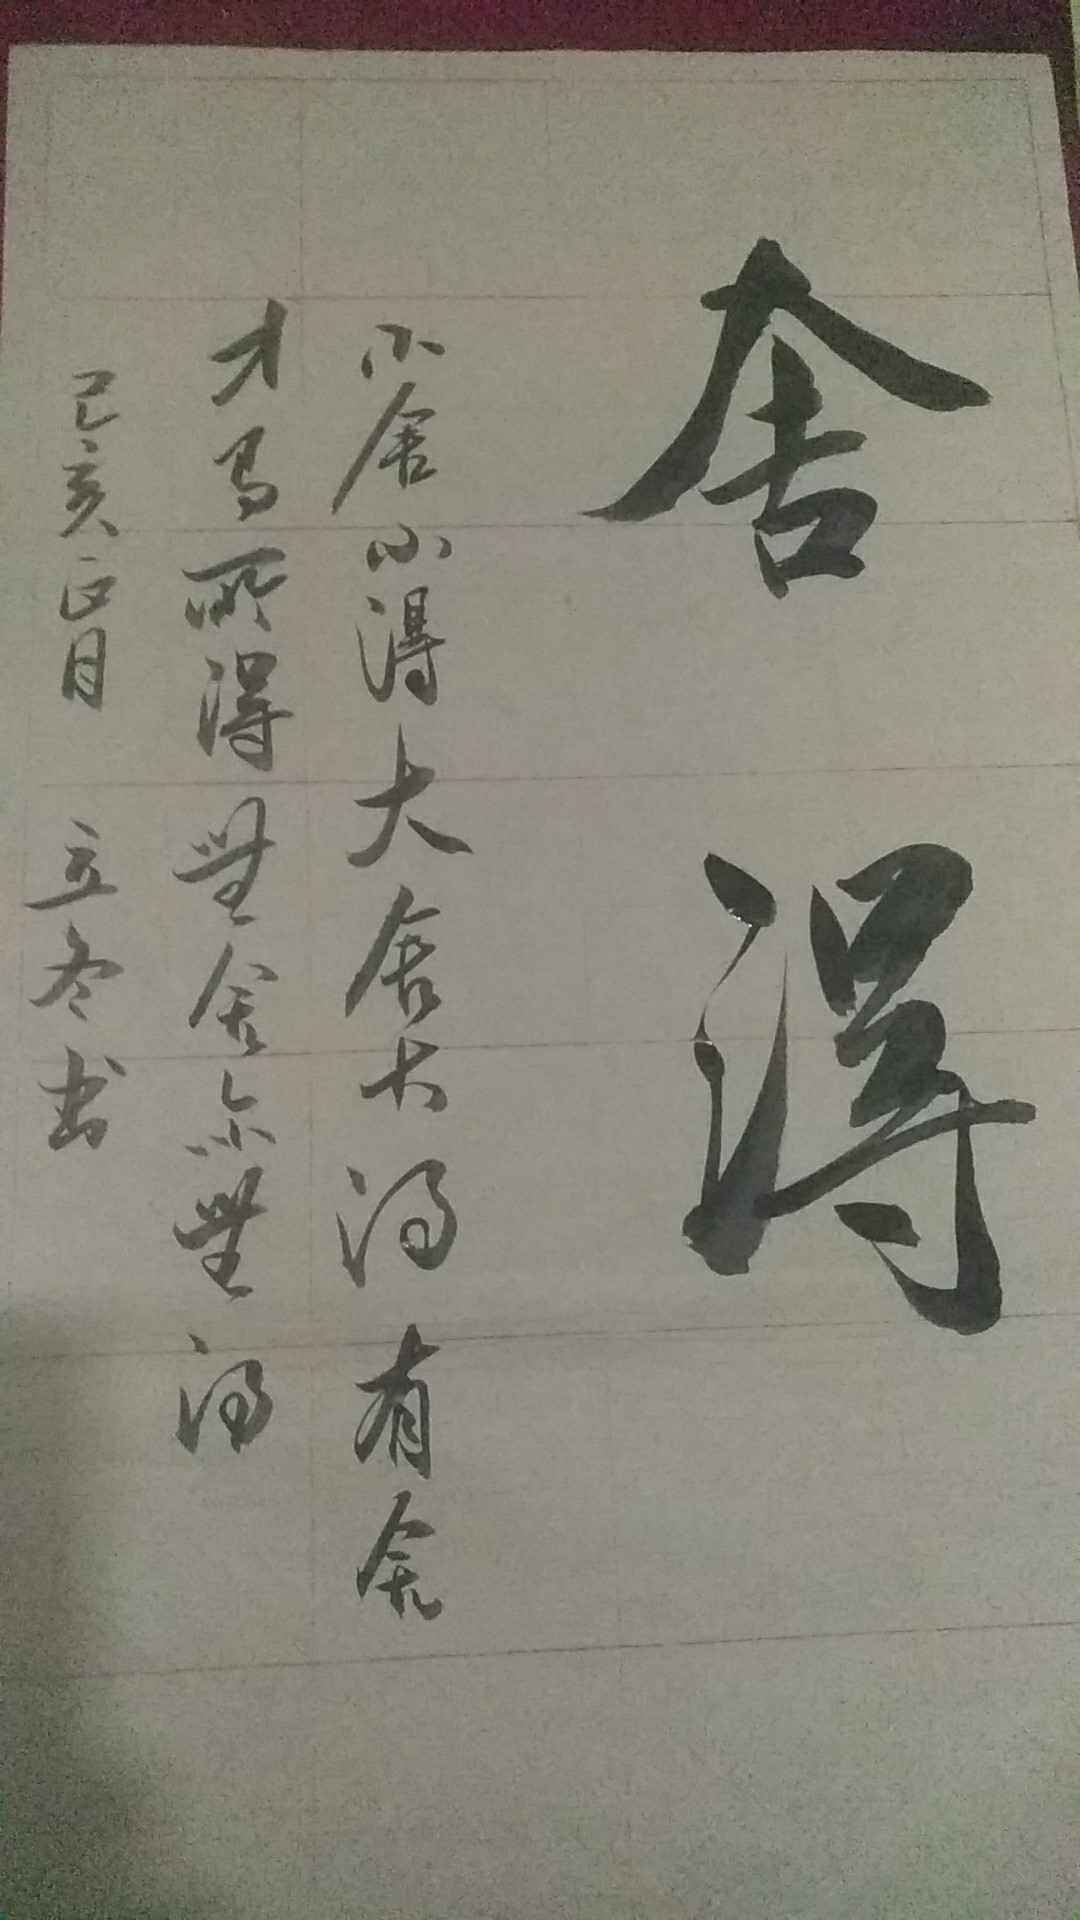 舍得
小舍小得大舍大得有舍
才有所得無舍亦無得
己亥正月 立冬书